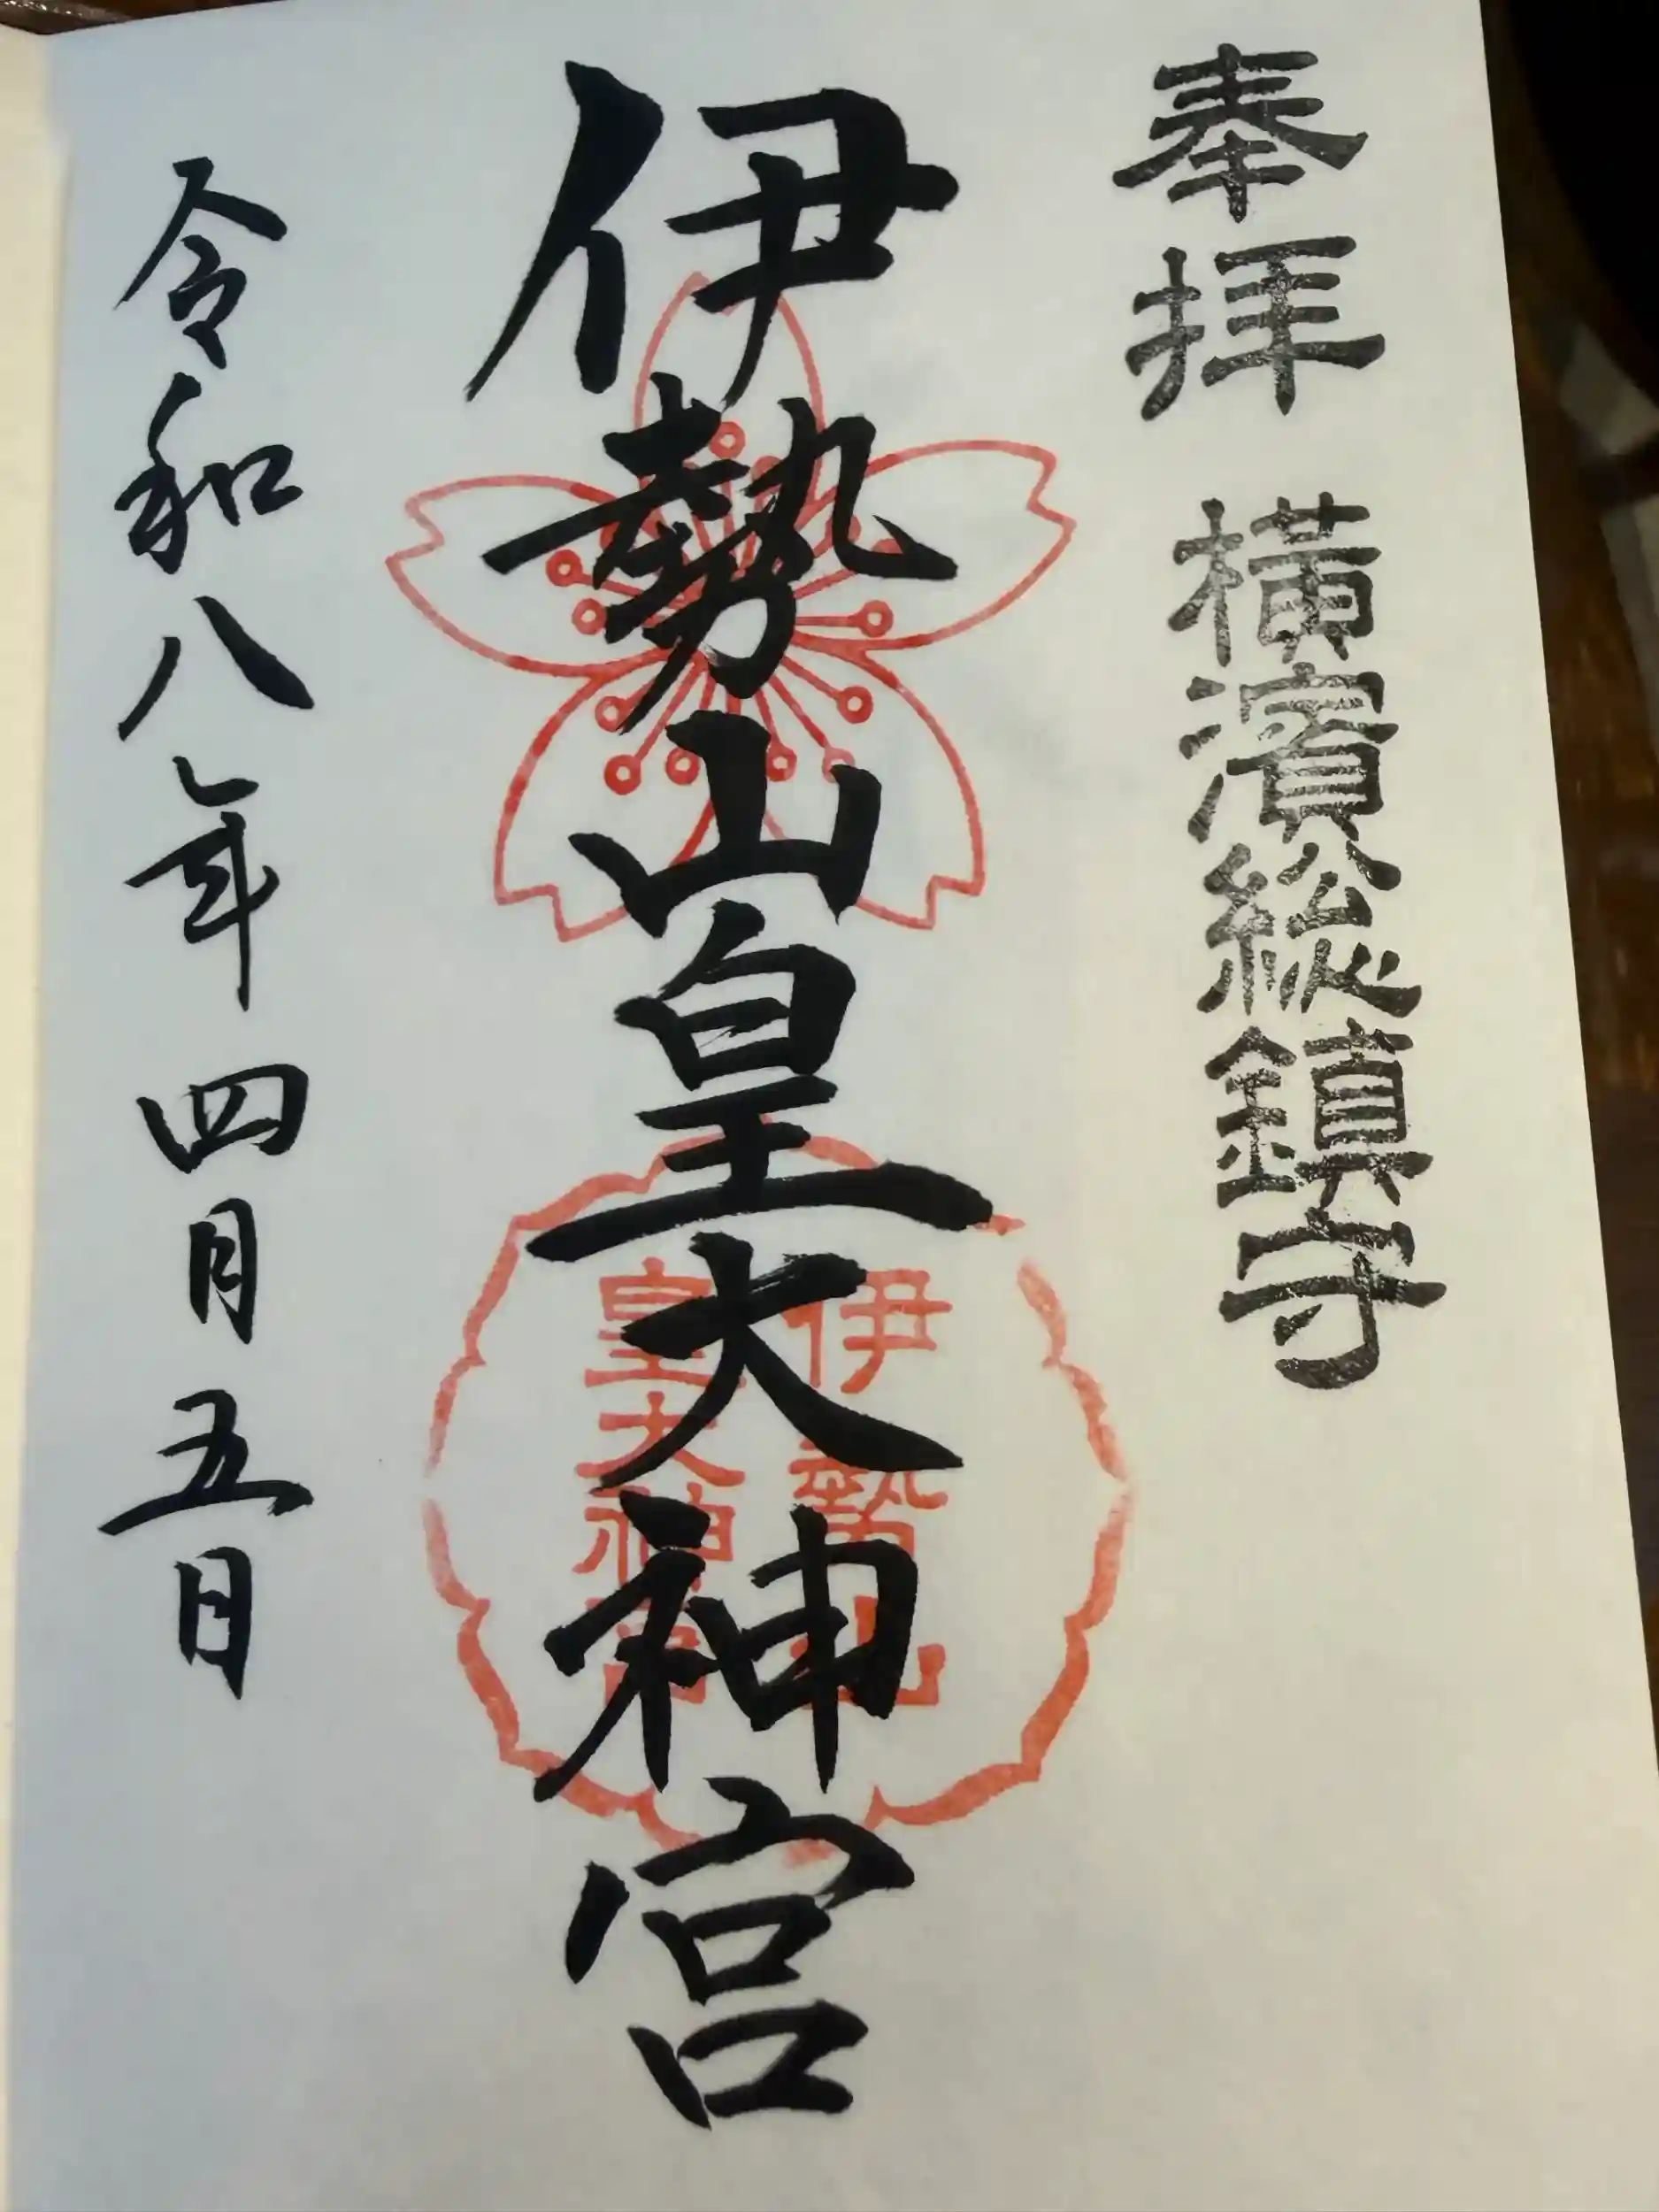 奉拝 横濱総鎮守
伊勢山皇大神宮
伊勢山
皇大神宮
令和八年 四月 五日